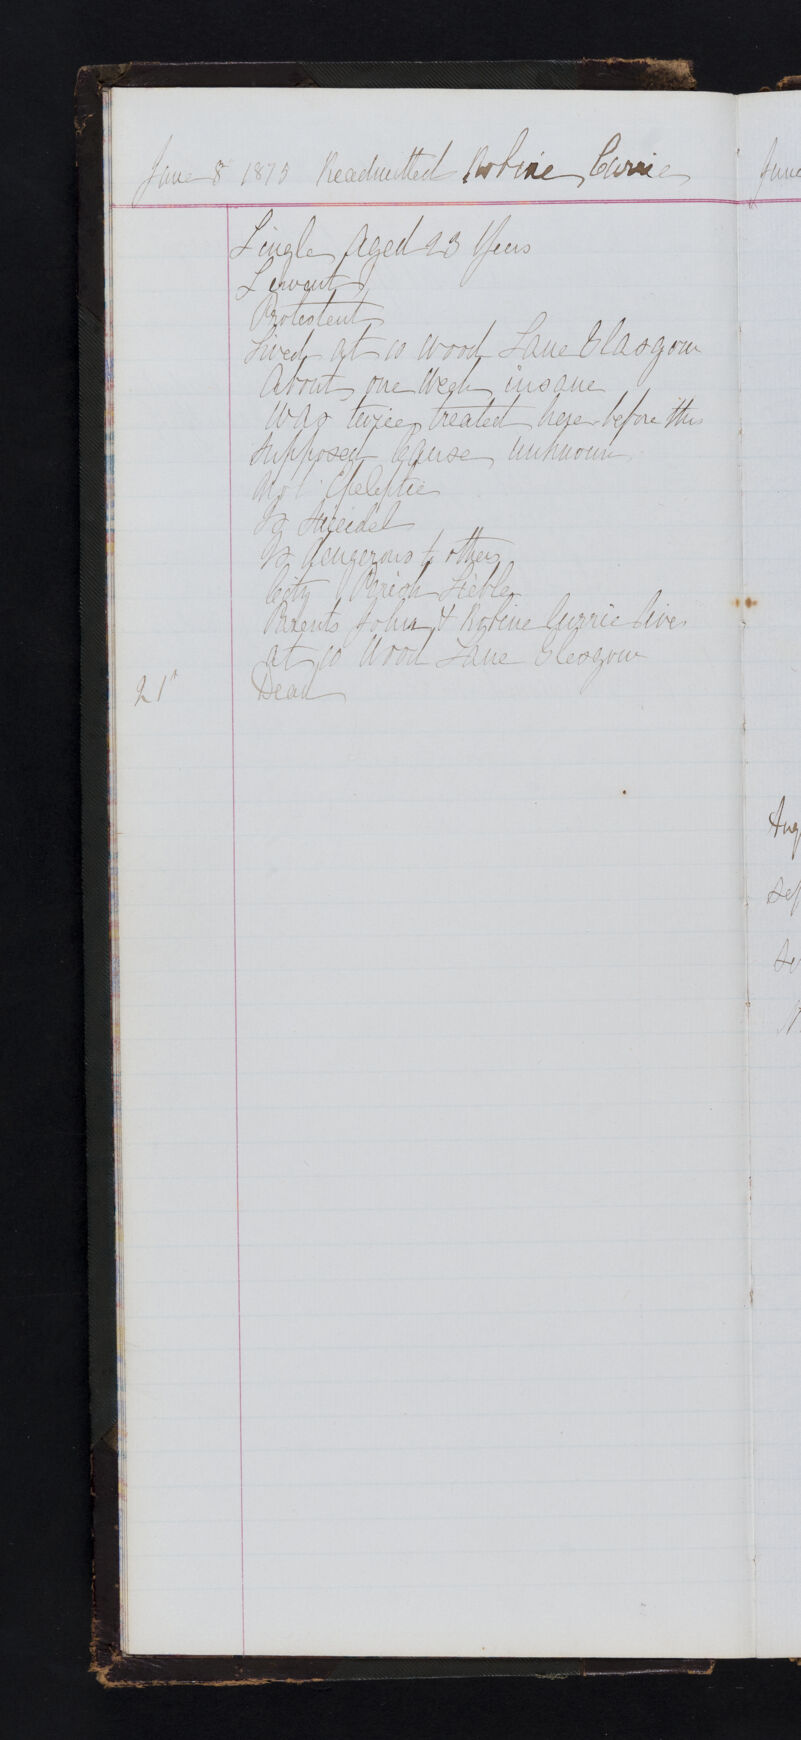 June 8 1873 Readmitted Robine Currie
Single Aged 23 Years
Servant
Protestent
Lived at 10 Wood Lane Glasgow
About one Week insane
Was twice treated here before this
Supposed Cause unknown
Not Epeleptic
Is Sueidel
Is dengerous to others
City Parish Lieble
Parents John & Robine Currie live
at 10 Wood Lane Glesgow
21st Dead
June
Aug
Sep
Se